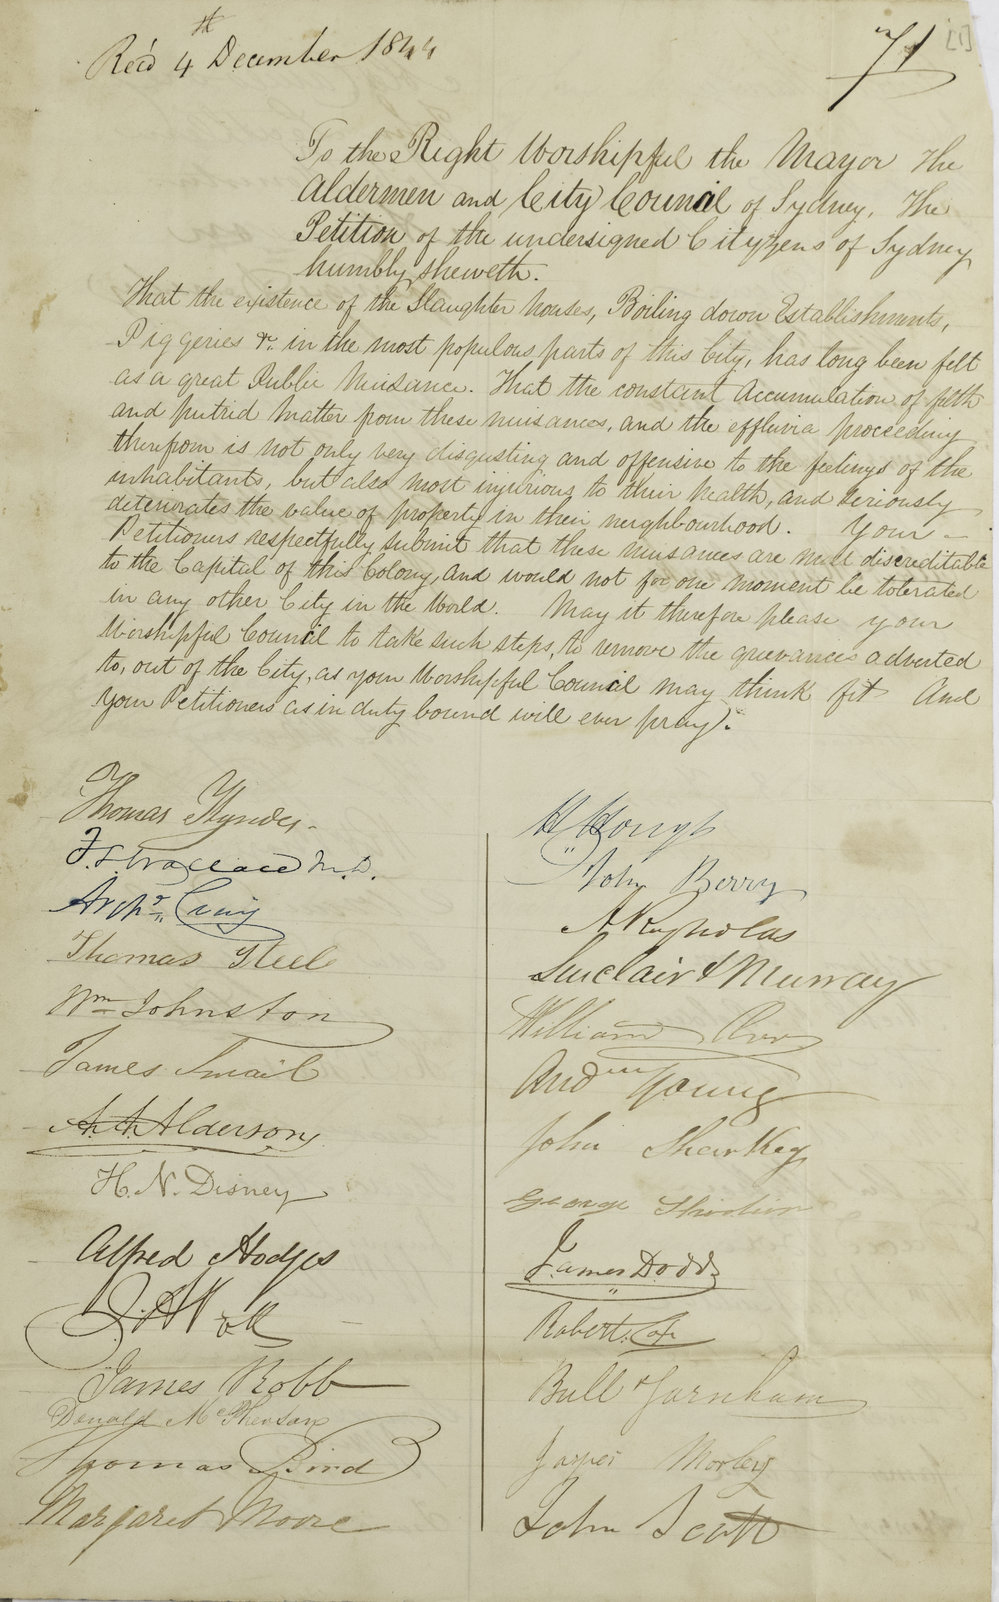 Rec'd 4th December 1844
71
[1]
To the Right Worshipful the Mayor The
Aldermen and City Council of Sydney, The
Petition of the undersigned Cityzens of Sydney
humbly sheweth.
That the existence of the Slaughter houses, Boiling down Establishments,
Piggeries &c. in the most populous parts of this City, has long been felt
as a great Public Nuisance. That the constant Accumulation of filth
and putrid Matter from these nuisances, and the effluvia proceeding
therefrom is not only very disgusting and offensive to the feelings of the
inhabitants, but also most injurious to their health, and seriously
deteriorates the value of property in their neighbourhood. Your
Petitioners respectfully submit that these nuisances are most discreditable
to the Capital of this Colony, and would not for one moment be tolerated
in any other City in the World. May it therefore please your
Worshipful Council to take such steps, to remove the grievances adverted
to, out of the City, as your Worshipful Council may think fit And
your Petitioners as in duty bound will ever pray).
Thomas Hyndes
F. L. Wallace M.D.
Archd. Craig
Thomas Steel
Wm Johnston
James Smail
A. A. Alderson
H. N. Disney
Alfred Hodges
James Robb
Donald McPherson
Thomas Bird
Margaret Moore
H. Hough
John Berry
A Reynolds
Sinclair & Murray
William Orr
Andw Young
John Sharkey
George
James Dodds
Robert Cox
Bull & Farnham
Jasper Morley
John Scott